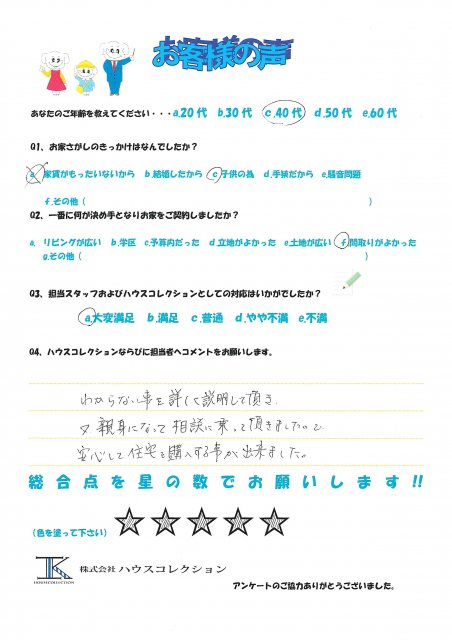 お客様の声
あなたのご年齢を教えてください・・・a.20代 b.30代 c.40代 d.50代 e.60代
Q1、お家さがしのきっかけはなんでしたか？
a.家賃がもったいないから b.結婚したから c.子供の為 d.手狭だから e.騒音問題
f.その他（ ）
Q2、一番に何が決め手となりお家をご契約しましたか？
a. リビングが広い b.学区 c.予算内だった d.立地がよかった e.土地が広い f.間取りがよかった
g.その他（ ）
Q3、担当スタッフおよびハウスコレクションとしての対応はいかがでしたか？
a.大変満足 b.満足 c.普通 d.やや不満 e.不満
Q4、ハウスコレクションならびに担当者へコメントをお願いします。
わからない事を詳しく説明して頂き、
又親身になって相談に乗って頂きましたので
安心して住宅を購入する事が出来ました。
総合点を星の数でお願いします!!
（色を塗って下さい）
HOUSECOLLECTION
株式会社 ハウスコレクション
アンケートのご協力ありがとうございました。